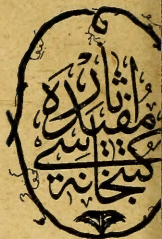 آثار
مفيده
كتبخانه سى